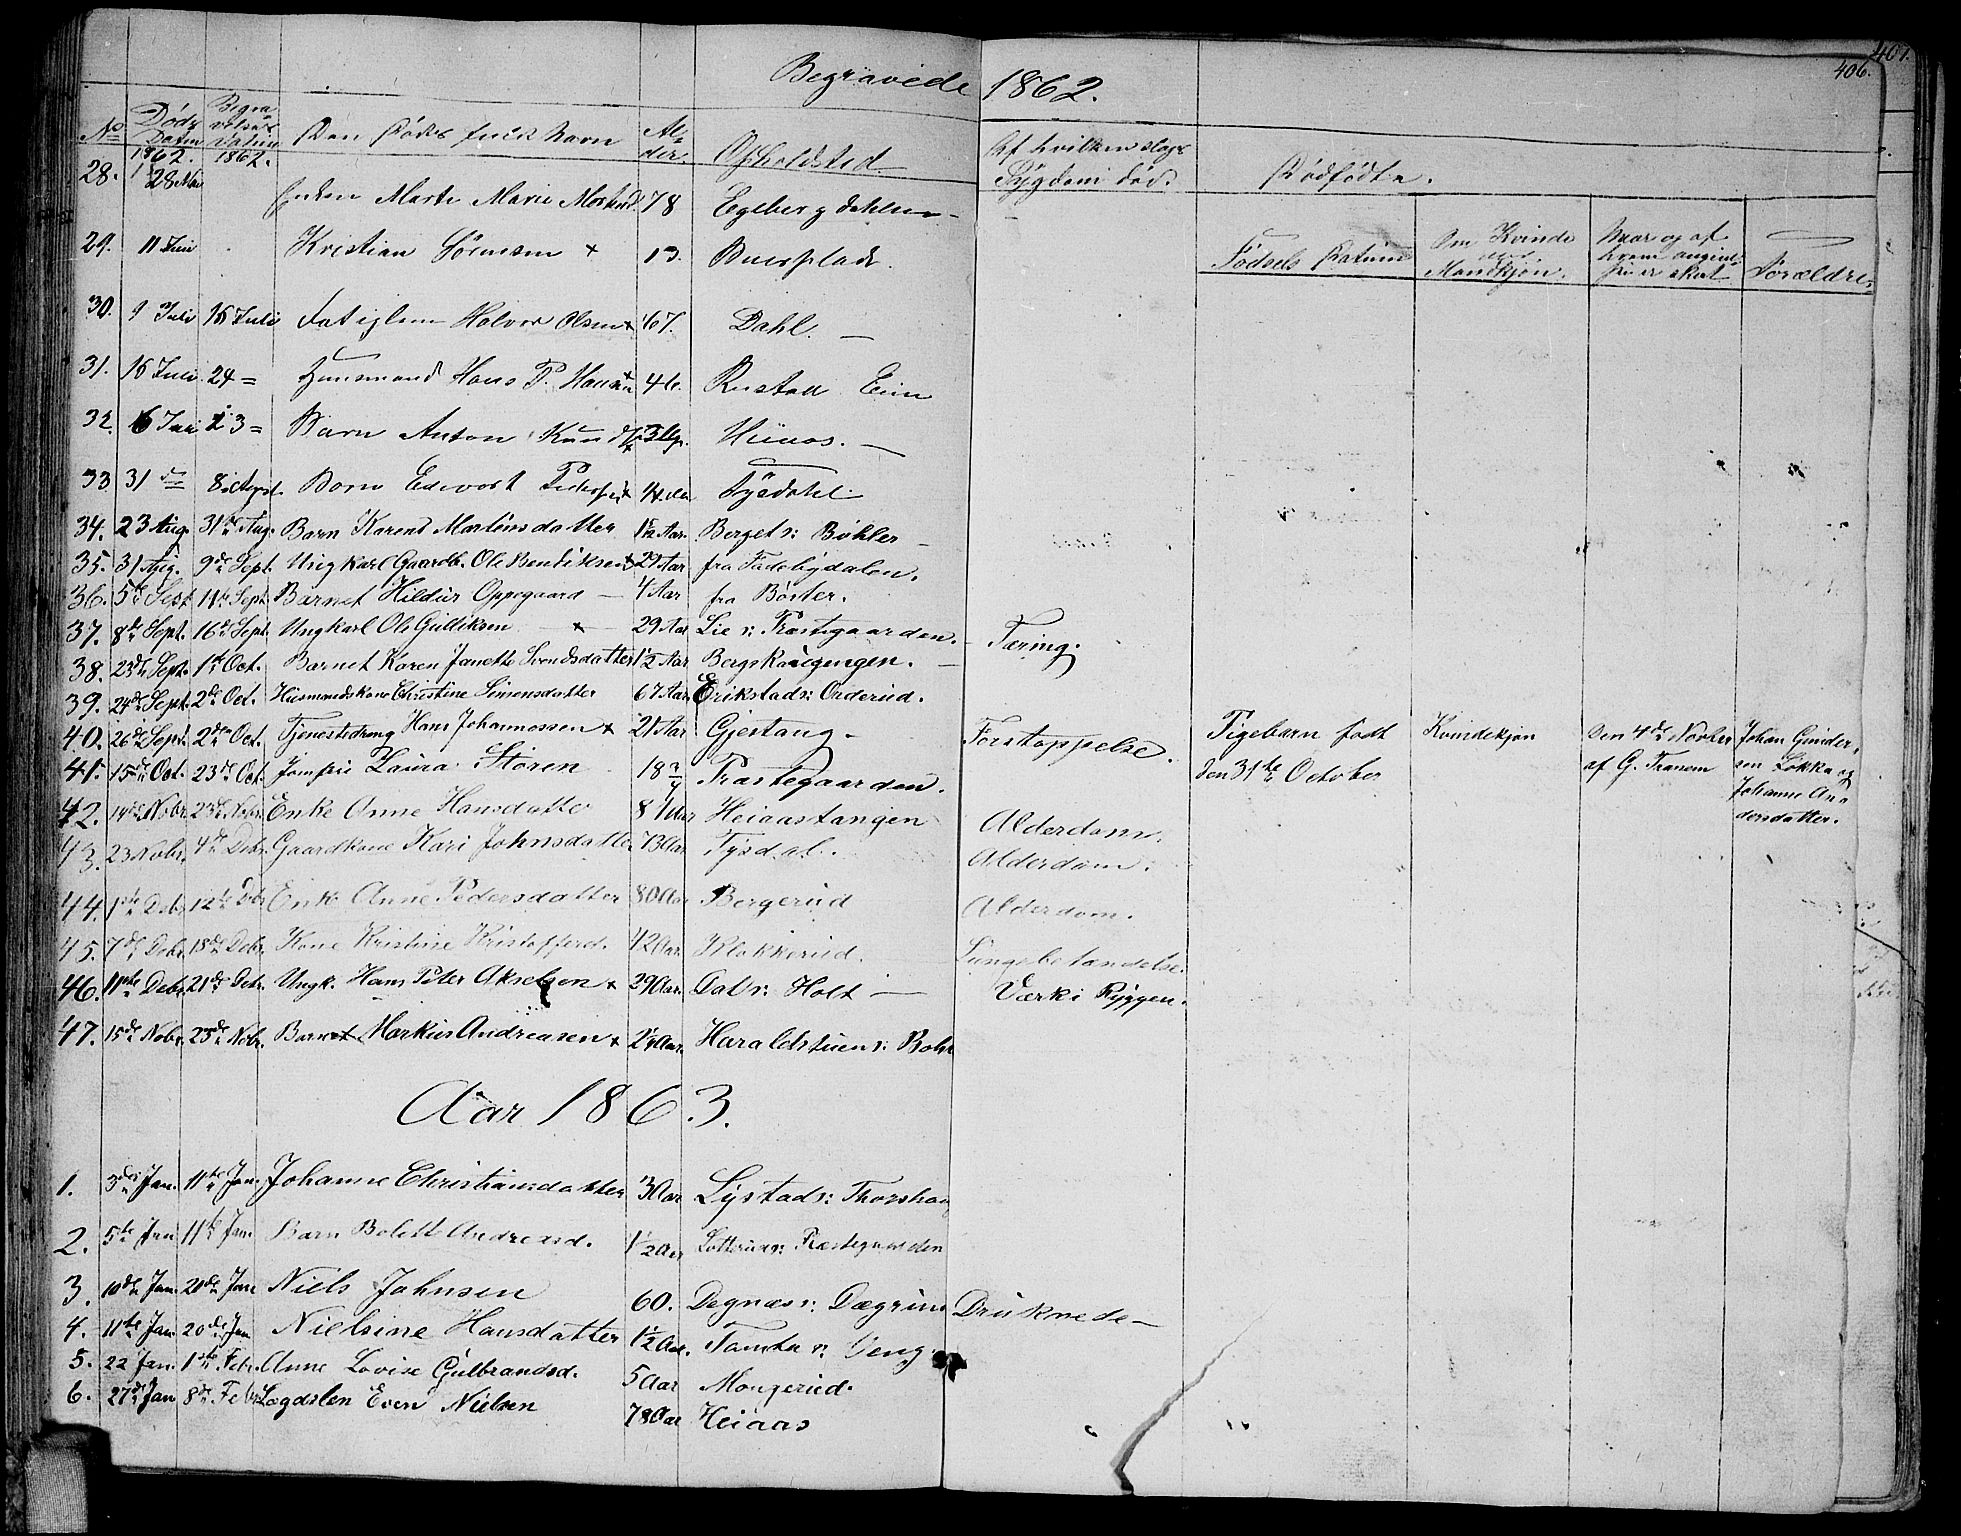 406.
407.
Begravede 1862.
No Døds Datum Begravelses Datum Den Dødes fulde Navn Alder Opholdsted Af hvilken slags Sygdom død. Dødfødte.
1862. 1862.
Fødsels Datum Om Kvinde Mandkjøn. Naar og af hvem Forældre
28. 28 Mai Enken Marte Marie 78 Egeberg
29. 11 Juni Kristian Sørensen x 13.
30. 9 Juli 16 Juli Fatiglem Halvor Olsen x 67. Dahl. —
31. 16 Juli 24 = Huusmand Hans P. Hansen x 46. Rustad Eier
32. 16 Juli 23 = Barn Anton —
33 31 8. August Barn Edvart Tysdahl
34. 23 Aug. 31te Aug. Barn Karend Martinsdatter 1½ Aar. Berget v: Bøhler —
35. 31 Aug. 9de Sept. Ungkarl Gaardb. Ole Bendiksen x 29 Aar fra Fadebydalen.
36. 5te Sept 11te Sept. Barnet Hildur Oppegaard — 4 Aar fra Børter.
37. 8de Sept. 16de Sept. Ungkarl Ole Gulliksen — x — 29 Aar Lie v: Præstegaarden. — Tæring.
38. 23de Sept. 1ste Oct. Barnet Karen Janette Svendsdatter 1½ Aar Bergskaugengen. —
39. 24de Sept. 2de Oct. Husmandskone Christine Simensdatter 67 Aar Erikstad v: Orderud.
40. 26de Sept. 2den Oct. Tjenestedreng Hans Johannessen x 21 Aar Gjestang. Forstoppelse. Pigebarn født den 31te October Kvindekjøn Den 4de Novber af G. Tranem Johan Gundersen Løkka og Johanne Andersdatter.
41. 15de Oct. 23de Oct. Jomfru Laura Støren 18 Præstegaarden.
42. 14de Nobr. 23de Nobr. Enke Anne Hansdatter 81 Aar Heiaastangen Alderdom.
43. 23 Nobr. 4de Debr. Gaardkone Kari Johnsdatter 73 Aar Tysdal. Alderdom.
44. 1ste Debr. 12te Debr. Enke Anne Pedersdatter 80 Aar Bergerud Alderdom.
45. 7de Debr. 18de Debr. Kone Kristine Kristofferd. 42 Aar. Klokkerud. Lungebetændelse.
46. 11te Debr. 21de Debr. Ungk. Hans Peter Akselsen x 29 Aar. Dal v: Holt — Værk i Ryggen.
47. 15de Nobr. 23de Nobr. Barnet Markus Andreasen x 2¼ Aar. Haraldstuen v:
Aar 1863.
1. 3die Jan. 11te Jan. Johanne Christiansdatter 3 Aar Lystad v: Thorshaug
2. 5te Jan 11te Jan. Barn Bolette Andreasd. 1½ Aar v: Præstegaarden
3. 10de Jan. 20de Jan Niels Johnsen 60. Degnæs v: Druknede —
4. 11te Jan. 20de Jan Nielsine Hansdatter 1½ Aar. Tomter v: Veng.
5. 22 Jan. 1ste Febr. Anne Lovise Gulbrandsd. 5 Aar Mongerud.
6. 27de Jan 8de Febr. Lægdslem Even Nielsen 78 Aar Heiaas